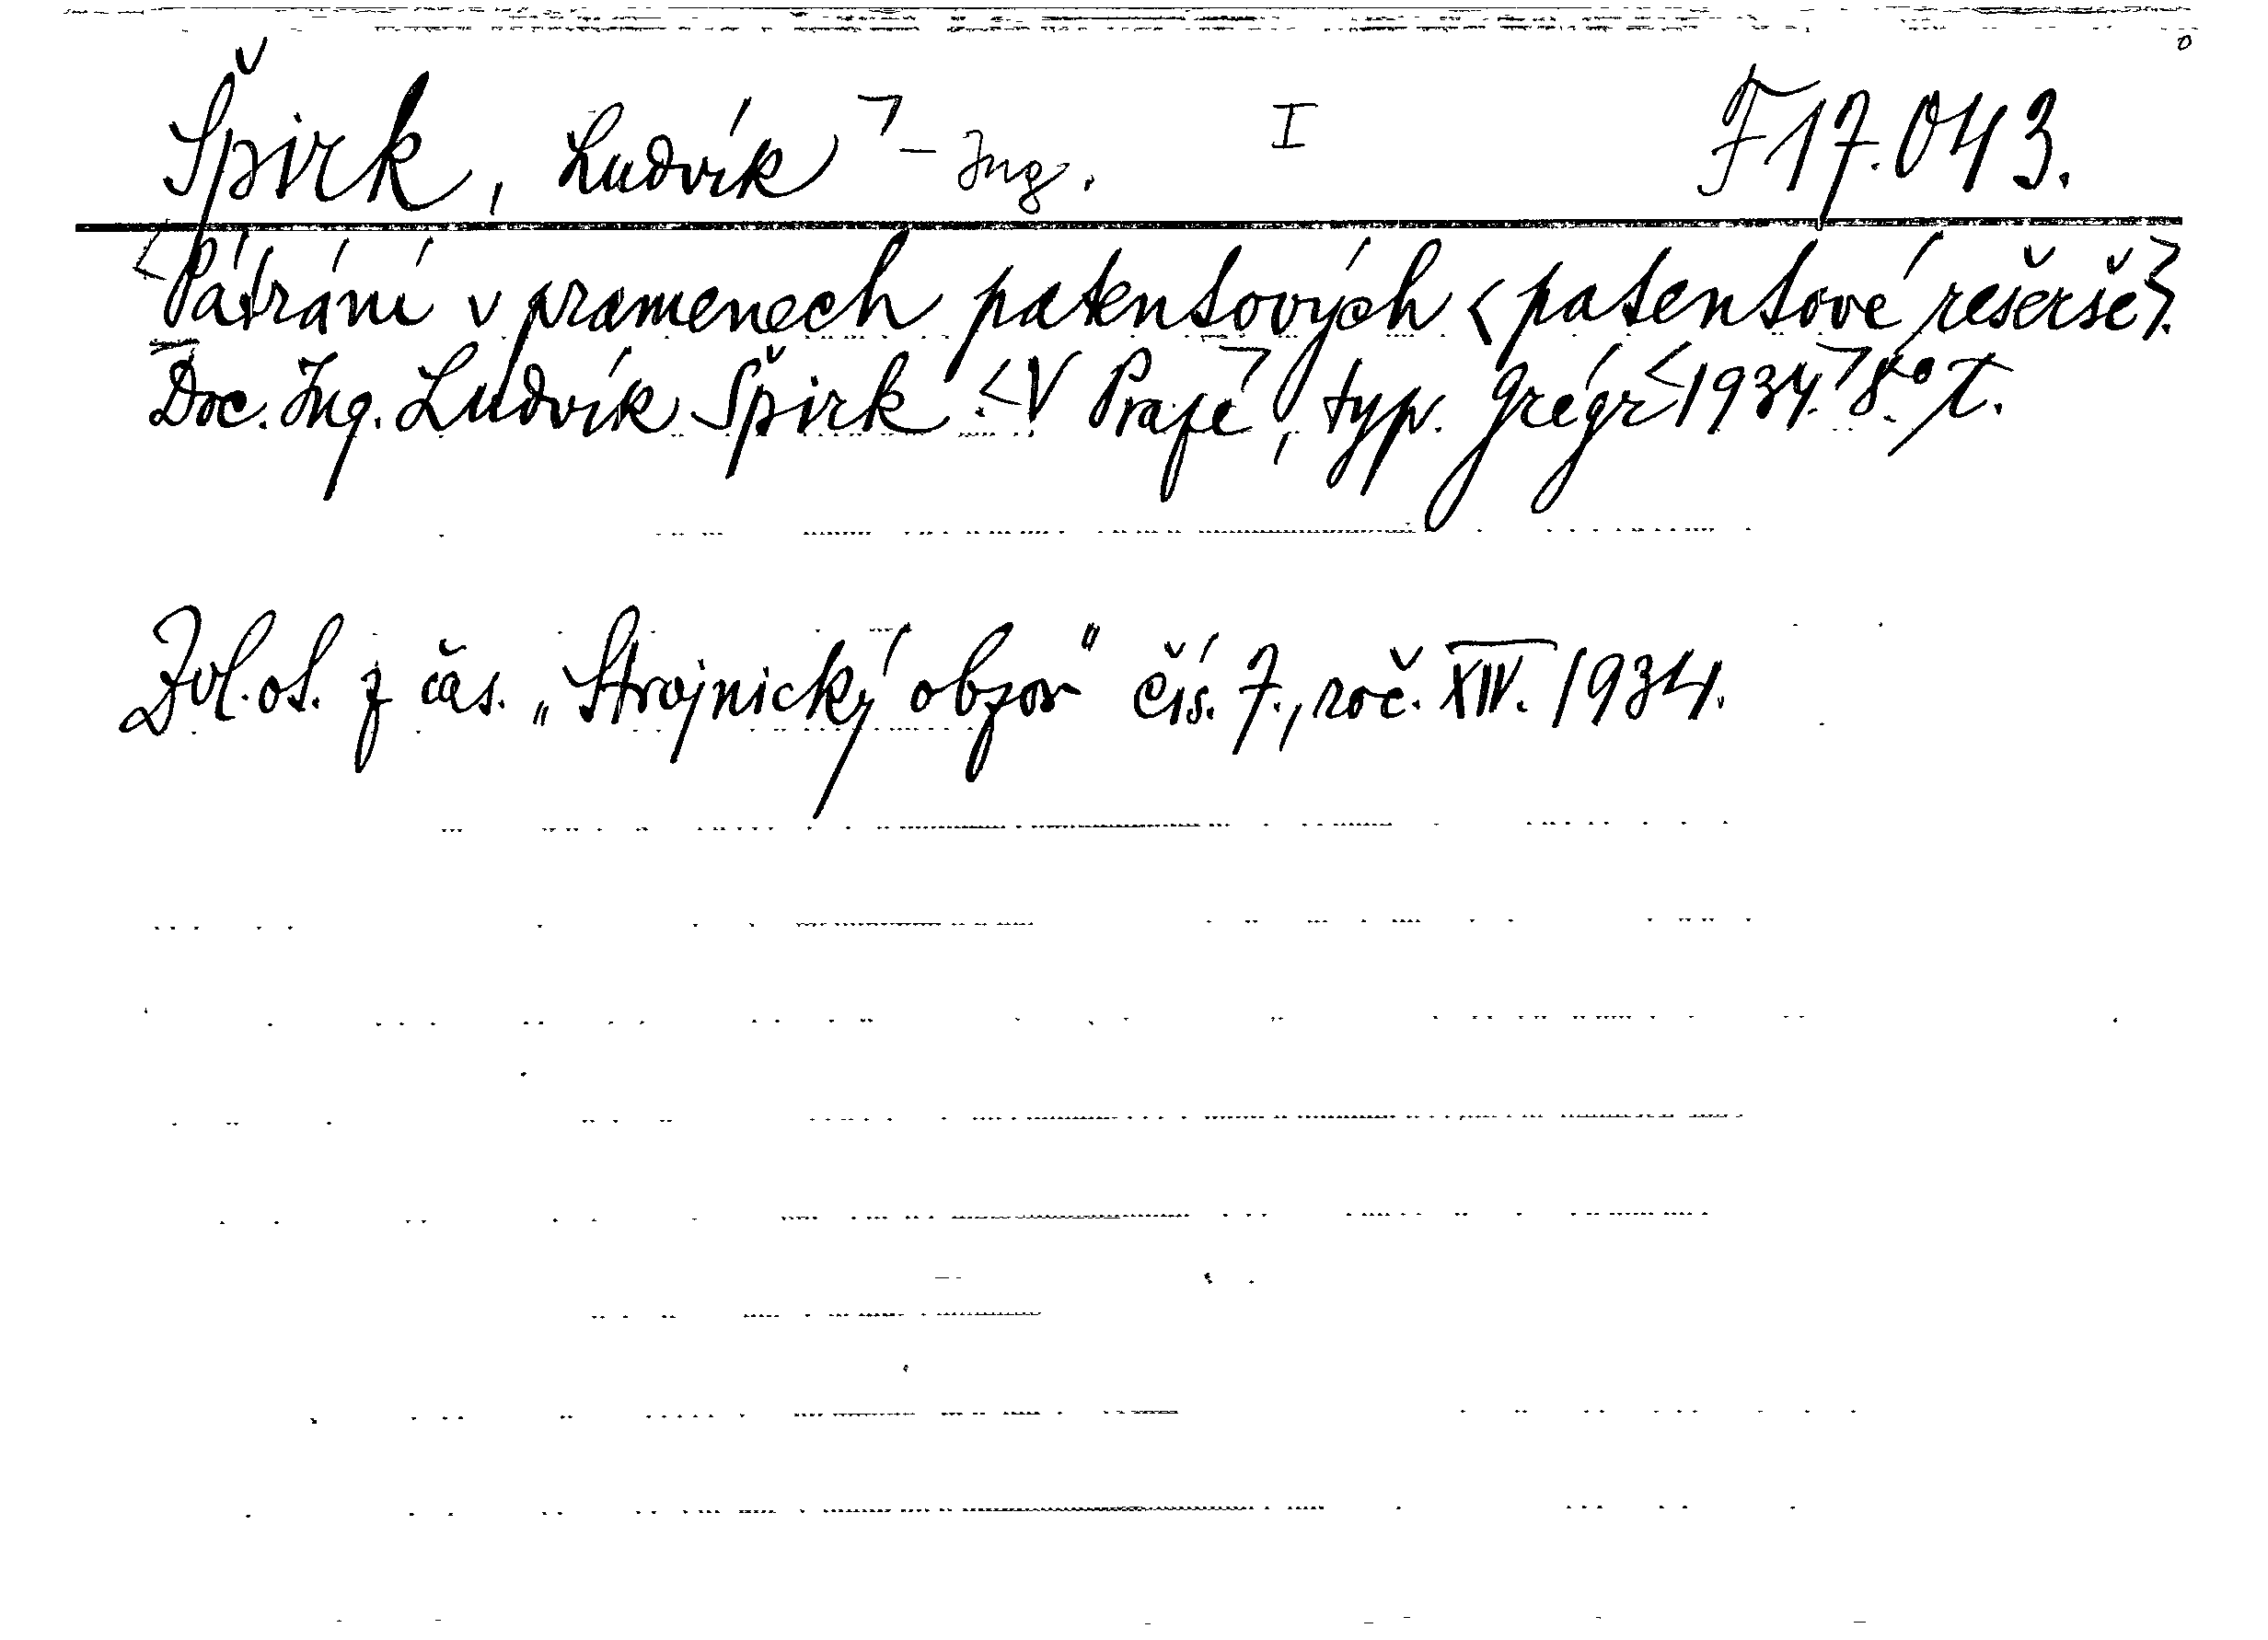 Špirk, Ludvík - Ing. I F 17.043.
Pátrání v pramenech patentových <patentové rešerše>.
Doc. Ing. Ludvík Špirk. V Praze, typ. Grégr 1934. 8° T.
Zvl. ot. z čas. „Strojnický obzor" čís. 7., roč. XIV. 1934.